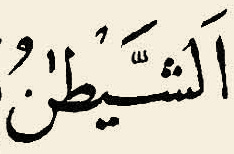 اَلشَّيْطٰنُ